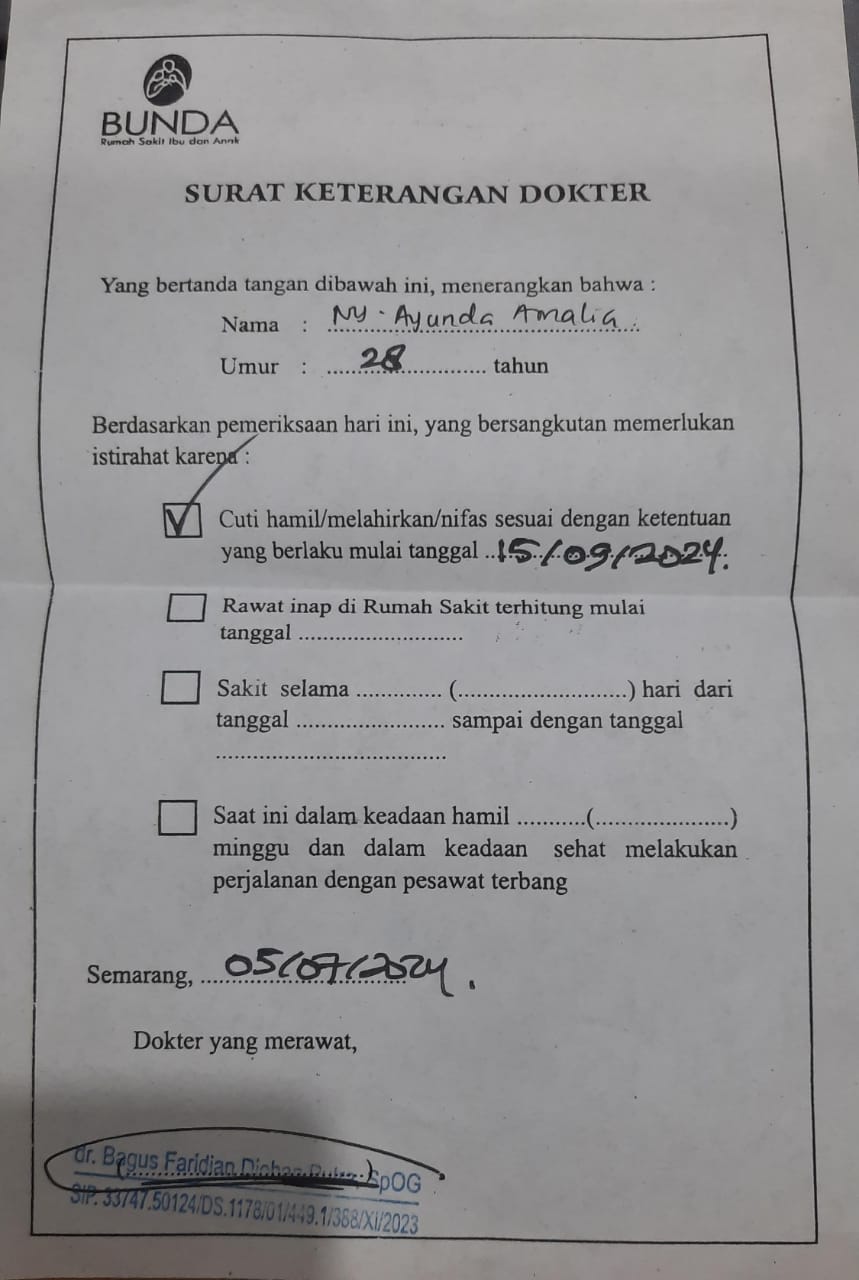 BUNDA
Rumah Sakit Ibu dan Anak
SURAT KETERANGAN DOKTER
Yang bertanda tangan dibawah ini, menerangkan bahwa :
Nama : Ny. Ayunda Amalia
Umur : 28 tahun
Berdasarkan pemeriksaan hari ini, yang bersangkutan memerlukan
istirahat karena :
Cuti hamil/melahirkan/nifas sesuai dengan ketentuan
yang berlaku mulai tanggal 15/09/2024.
Rawat inap di Rumah Sakit terhitung mulai
tanggal ...........................
Sakit selama .............. (............................) hari dari
tanggal ......................... sampai dengan tanggal
.......................................
Saat ini dalam keadaan hamil ...........(......................)
minggu dan dalam keadaan sehat melakukan
perjalanan dengan pesawat terbang
Semarang, 05/07/2024.
Dokter yang merawat,
dr. Bagus Faridian SpOG
SIP. 33747.50124/DS.1178/01/449.1/388/XI/2023